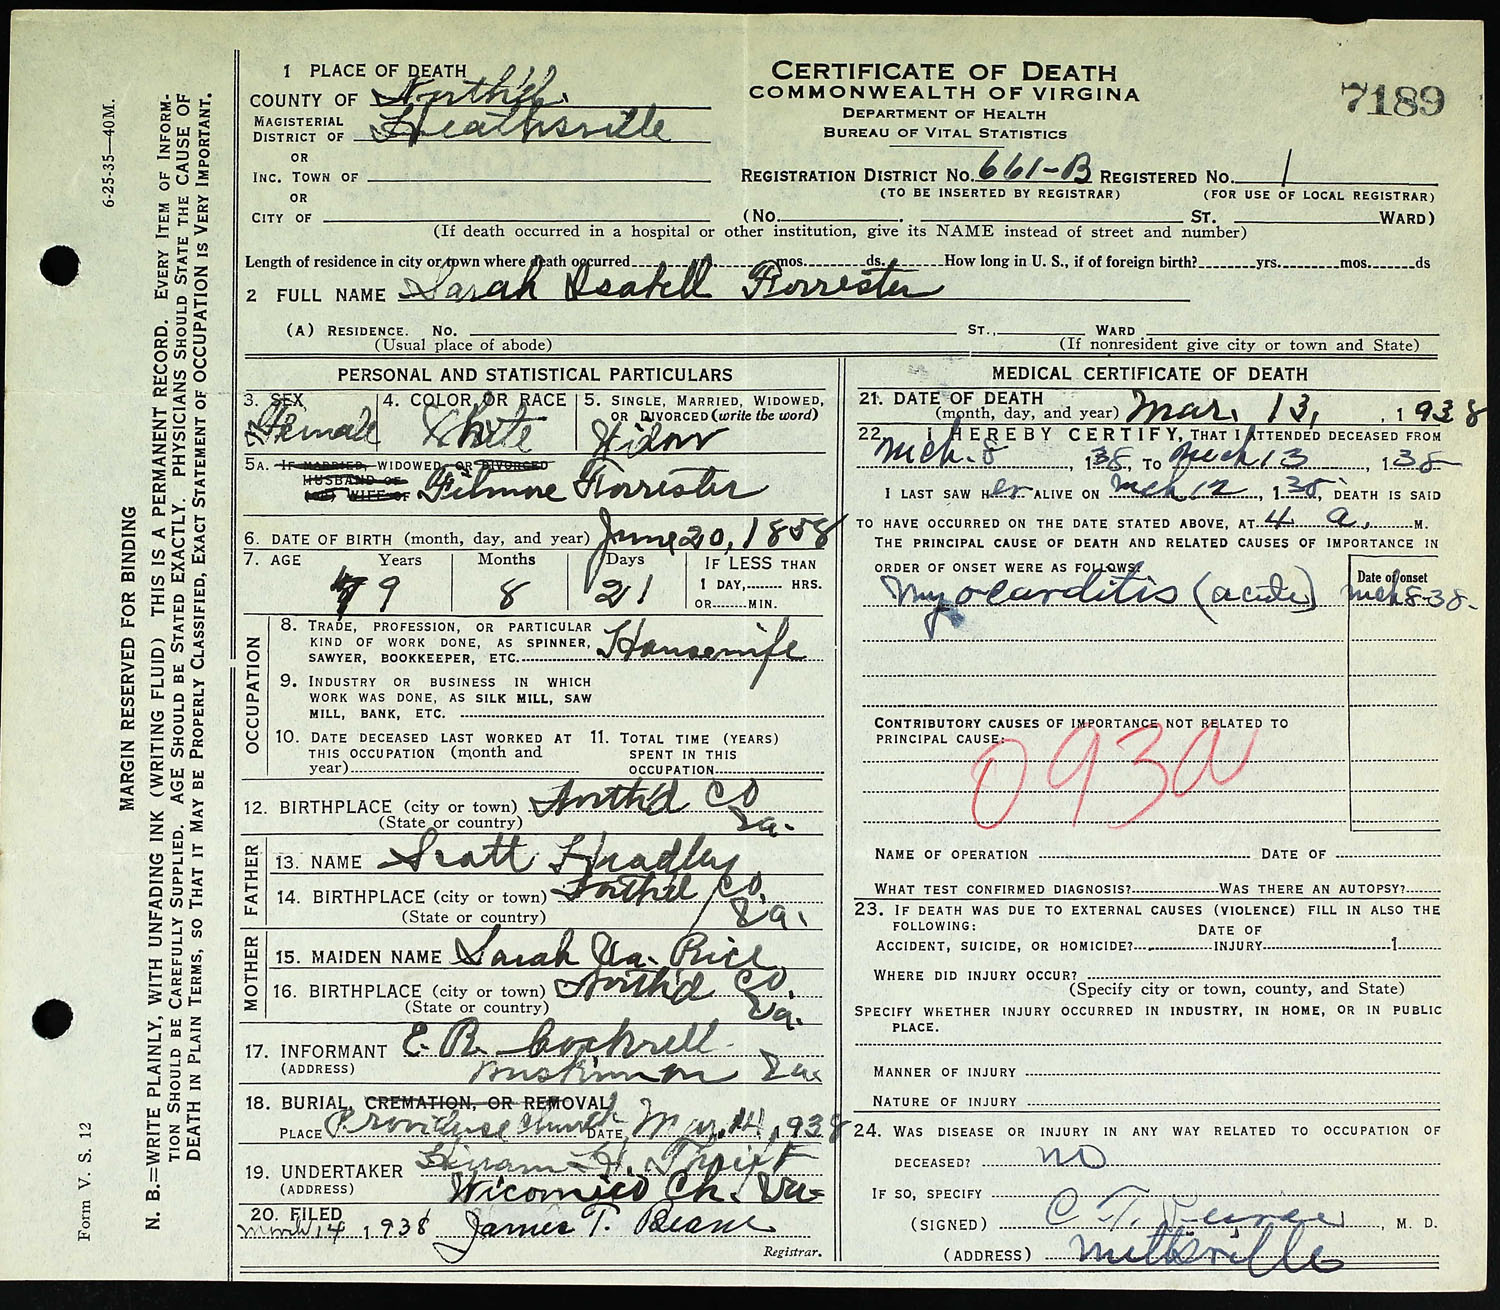 7189
CERTIFICATE OF DEATH
COMMONWEALTH OF VIRGINA
DEPARTMENT OF HEALTH
BUREAU OF VITAL STATISTICS
1 PLACE OF DEATH
COUNTY OF North'd.
MAGISTERIAL DISTRICT OF Heathsville
OR
INC. TOWN OF
OR
CITY OF
REGISTRATION DISTRICT NO. 661-B REGISTERED NO. 1
(TO BE INSERTED BY REGISTRAR) (FOR USE OF LOCAL REGISTRAR)
(NO. ST. WARD)
(If death occurred in a hospital or other institution, give its NAME instead of street and number)
Length of residence in city or town where death occurred mos. ds. How long in U. S., if of foreign birth? yrs. mos. ds
2 FULL NAME Sarah Isabell Forrester
(A) RESIDENCE. NO. ST., WARD
(Usual place of abode) (If nonresident give city or town and State)
PERSONAL AND STATISTICAL PARTICULARS
3. SEX Female
4. COLOR OR RACE White
5. SINGLE, MARRIED, WIDOWED, OR DIVORCED (write the word) Widow
5A. IF MARRIED, WIDOWED, OR DIVORCED
HUSBAND OF
(OR) WIFE OF Filmore Forrester
6. DATE OF BIRTH (month, day, and year) June 20, 1858
7. AGE Years Months Days IF LESS THAN
79 8 21 1 DAY, HRS.
OR MIN.
OCCUPATION
8. TRADE, PROFESSION, OR PARTICULAR
KIND OF WORK DONE, AS SPINNER,
SAWYER, BOOKKEEPER, ETC. Housewife
9. INDUSTRY OR BUSINESS IN WHICH
WORK WAS DONE, AS SILK MILL, SAW
MILL, BANK, ETC.
10. DATE DECEASED LAST WORKED AT
THIS OCCUPATION (month and
year)
11. TOTAL TIME (YEARS)
SPENT IN THIS
OCCUPATION
12. BIRTHPLACE (city or town) North'd Co
(State or country) Va.
FATHER
13. NAME Scott Headley
14. BIRTHPLACE (city or town) North'd Co.
(State or country) Va.
MOTHER
15. MAIDEN NAME Sarah Rice
16. BIRTHPLACE (city or town) North'd Co.
(State or country) Va.
17. INFORMANT E. R. Cockrell
(ADDRESS) Va
18. BURIAL, CREMATION, OR REMOVAL
PLACE Providence Church DATE Mar. 14, 1938
19. UNDERTAKER Hiram H. Thrift
(ADDRESS) Wicomico Ch. Va
20. FILED March 14 1938 James T. Beane
Registrar.
MEDICAL CERTIFICATE OF DEATH
21. DATE OF DEATH
(month, day, and year) Mar. 13, , 1938
22. I HEREBY CERTIFY, THAT I ATTENDED DECEASED FROM
Mch. 8 , 1 38, TO Mch 13 , 1 38
I LAST SAW HER ALIVE ON Mch 12 , 1 38, DEATH IS SAID
TO HAVE OCCURRED ON THE DATE STATED ABOVE, AT 4 a. M.
THE PRINCIPAL CAUSE OF DEATH AND RELATED CAUSES OF IMPORTANCE IN
ORDER OF ONSET WERE AS FOLLOWS:
Date of onset
Myocarditis (acute) Mch 8-38-
CONTRIBUTORY CAUSES OF IMPORTANCE NOT RELATED TO
PRINCIPAL CAUSE:
093a
NAME OF OPERATION DATE OF
WHAT TEST CONFIRMED DIAGNOSIS? WAS THERE AN AUTOPSY?
23. IF DEATH WAS DUE TO EXTERNAL CAUSES (VIOLENCE) FILL IN ALSO THE
FOLLOWING:
DATE OF
ACCIDENT, SUICIDE, OR HOMICIDE? INJURY 1
WHERE DID INJURY OCCUR?
(Specify city or town, county, and State)
SPECIFY WHETHER INJURY OCCURRED IN INDUSTRY, IN HOME, OR IN PUBLIC
PLACE.
MANNER OF INJURY
NATURE OF INJURY
24. WAS DISEASE OR INJURY IN ANY WAY RELATED TO OCCUPATION OF
DECEASED? no
IF SO, SPECIFY
(SIGNED) C. T. Peirce , M. D.
(ADDRESS)
6-25-35—40M.
MARGIN RESERVED FOR BINDING
N. B.=WRITE PLAINLY, WITH UNFADING INK (WRITING FLUID) THIS IS A PERMANENT RECORD. EVERY ITEM OF INFORM-
TION SHOULD BE CAREFULLY SUPPLIED. AGE SHOULD BE STATED EXACTLY. PHYSICIANS SHOULD STATE THE CAUSE OF
DEATH IN PLAIN TERMS, SO THAT IT MAY BE PROPERLY CLASSIFIED, EXACT STATEMENT OF OCCUPATION IS VERY IMPORTANT.
Form V. S. 12